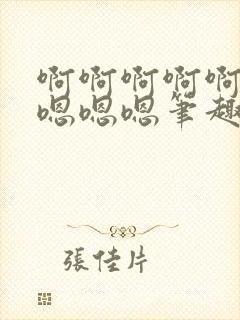 啊啊啊啊啊
嗯嗯嗯笔趣
張佳片